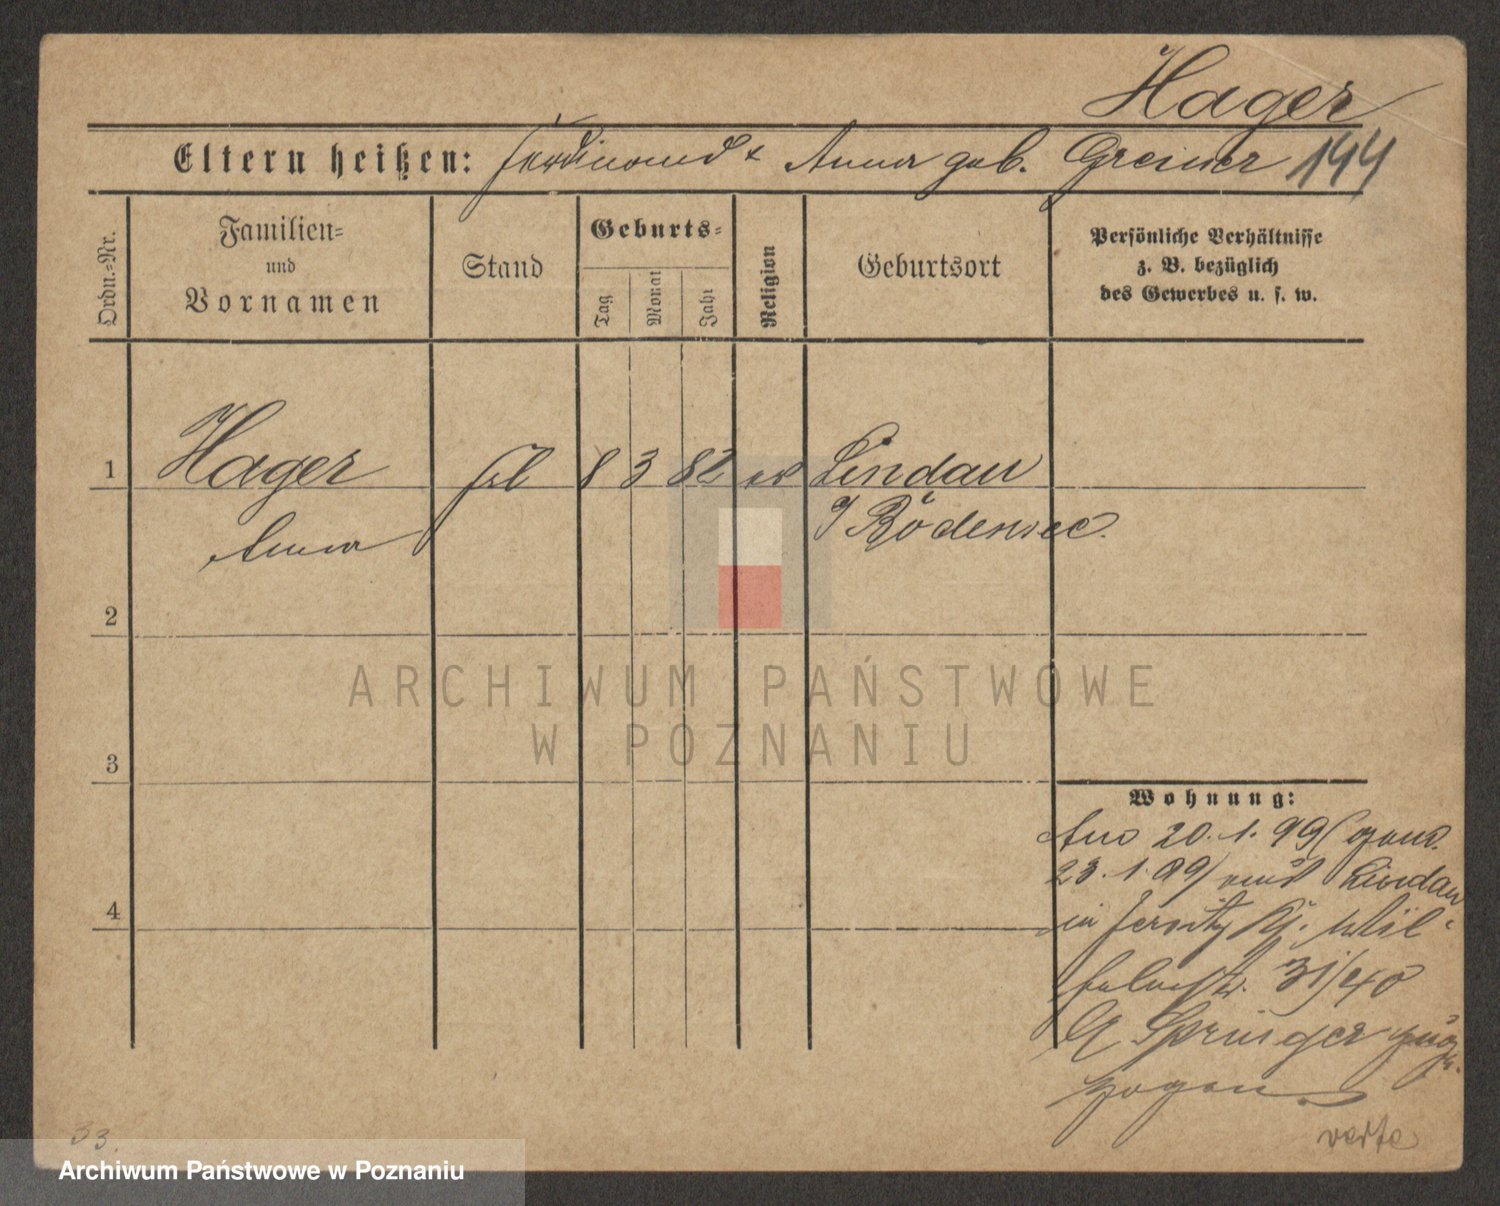 Hager
Eltern heißen: Ferdinand & Anna geb. Greiner 144
Ordn.-Nr.
Familien-
und
Vornamen
Stand
Geburts-
Tag
Monat
Jahr
Religion
Geburtsort
Persönliche Verhältnisse
z. B. bezüglich
des Gewerbes u. s. w.
1 Hager 8 3 82 ev Lindau
Anna
2
3
4
ARCHIWUM PAŃSTWOWE
W POZNANIU
Wohnung:
20. 1. 99
23. 1. 99 aus Lindau
in Jersitz
31/40
Springer
zogen.
verte
33.
Archiwum Państwowe w Poznaniu